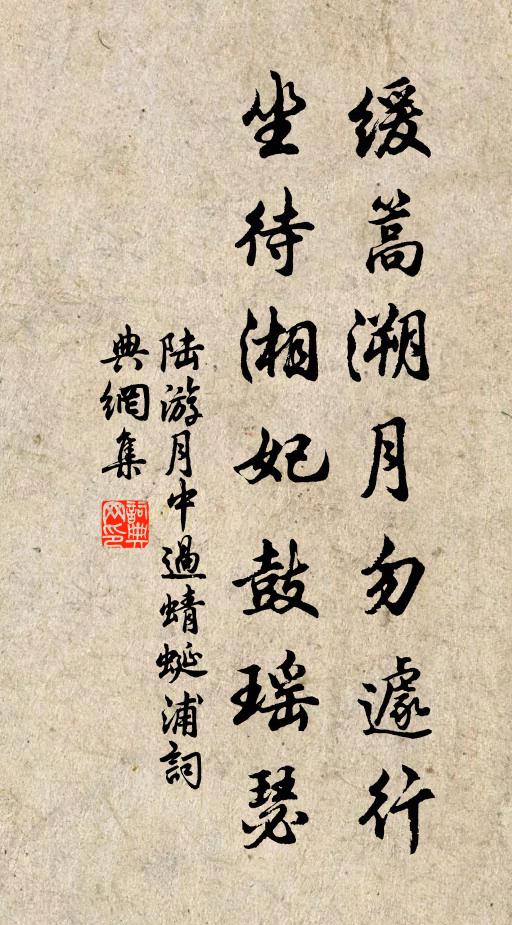 缓篙溯月勿遽行
坐待湘妃鼓瑶瑟
陆游月中過蜻蜒浦詞
典網集
詞典网印